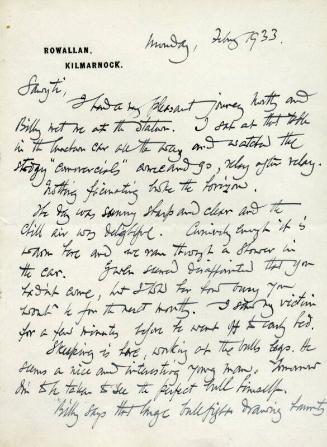 ROWALLAN,
KILMARNOCK.
Monday, Feby 1933.
I had a very pleasant journey North and
Billy met me at the Station. I sat at that table
in the luncheon car all the way and watched the
stodgy "commercials" come and go, relay after relay.
Nothing broke the horizon.
The day was sunny sharp and clear and the
chill air was delightful. Curiously enough it is
warm here and we ran through a shower in
the car. Gwen seemed disappointed that you
hadn't come, but I told her how busy you
would be for the next month. I saw my victim
for a few minutes before he went off to early bed.
Skeaping is here, working at the bulls legs. He
seems a nice and interesting young man. Tomorrow
I'm to be taken to see the perfect bull himself.
Billy says that huge bullfight drawing haunts